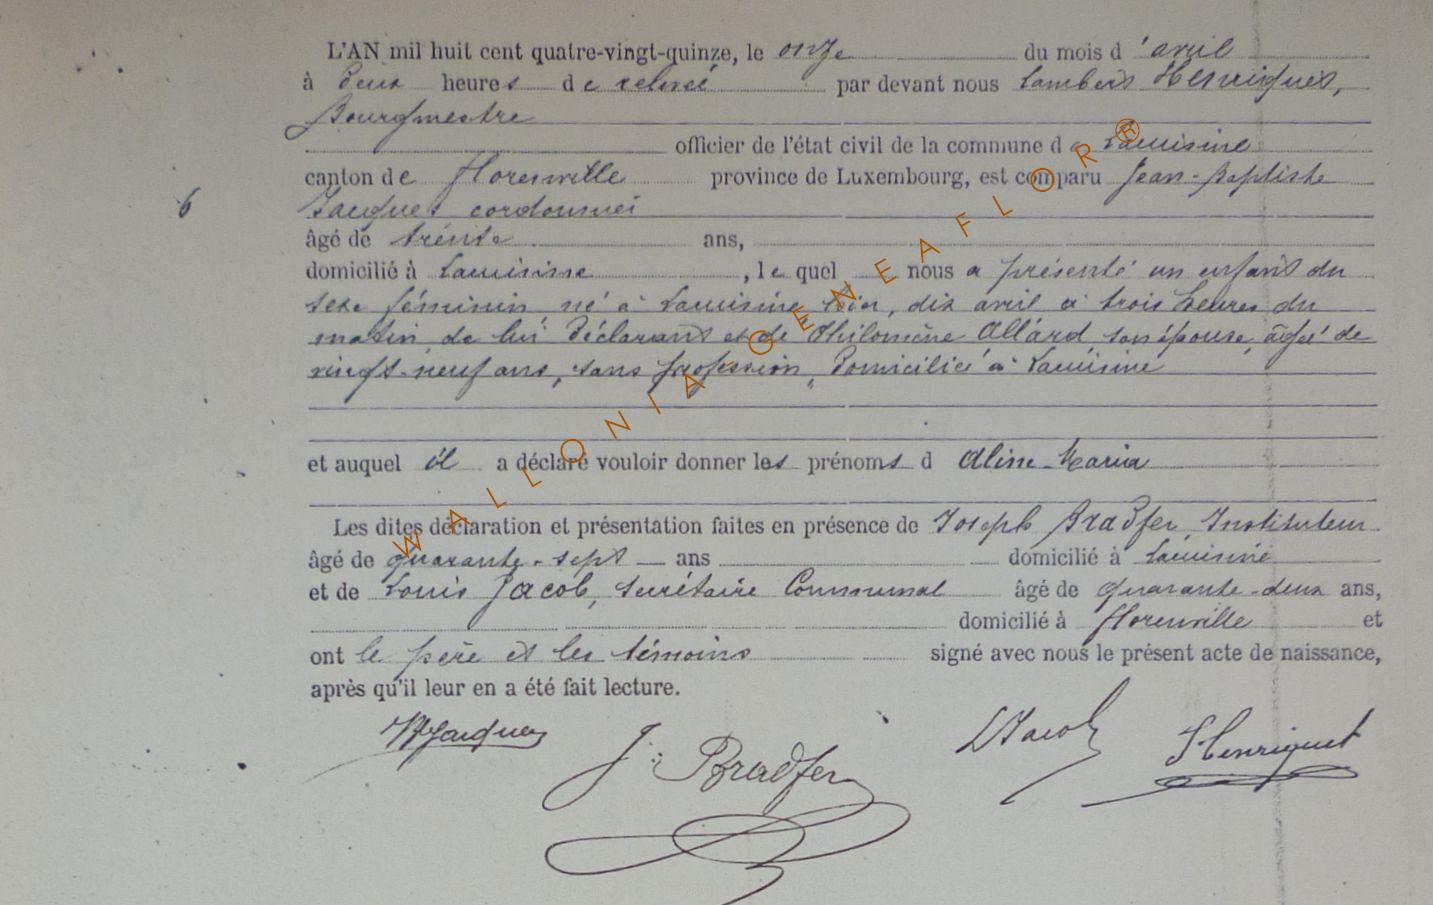 L'AN mil huit cent quatre-vingt-quinze, le onze du mois d'avril
à deux heures de relevé par devant nous Lambert Henriquet,
Bourgmestre
officier de l'état civil de la commune de Lacuisine
canton de Florenville province de Luxembourg, est comparu Jean-Baptiste
6 Jacques cordonnier
âgé de trente ans,
domicilié à Lacuisine, le quel nous a présenté un enfant du
sexe féminin, né à Lacuisine, hier, dix avril à trois heures du
matin, de lui déclarant et de Philomène Allard son épouse, âgée de
vingt-neuf ans, sans profession, domiciliée à Lacuisine
et auquel il a déclaré vouloir donner les prénoms d Aline-Maria
Les dites déclaration et présentation faites en présence de Joseph Bradfer Instituteur
âgé de quarante-sept ans domicilié à Lacuisine
et de Louis Jacob, Secrétaire Communal âgé de quarante-deux ans,
domicilié à Florenville et
ont le père et les témoins signé avec nous le présent acte de naissance,
après qu'il leur en a été fait lecture.
Jacques J. Bradfer L Jacob Henriquet
WALLONIA GENEAFLOR®